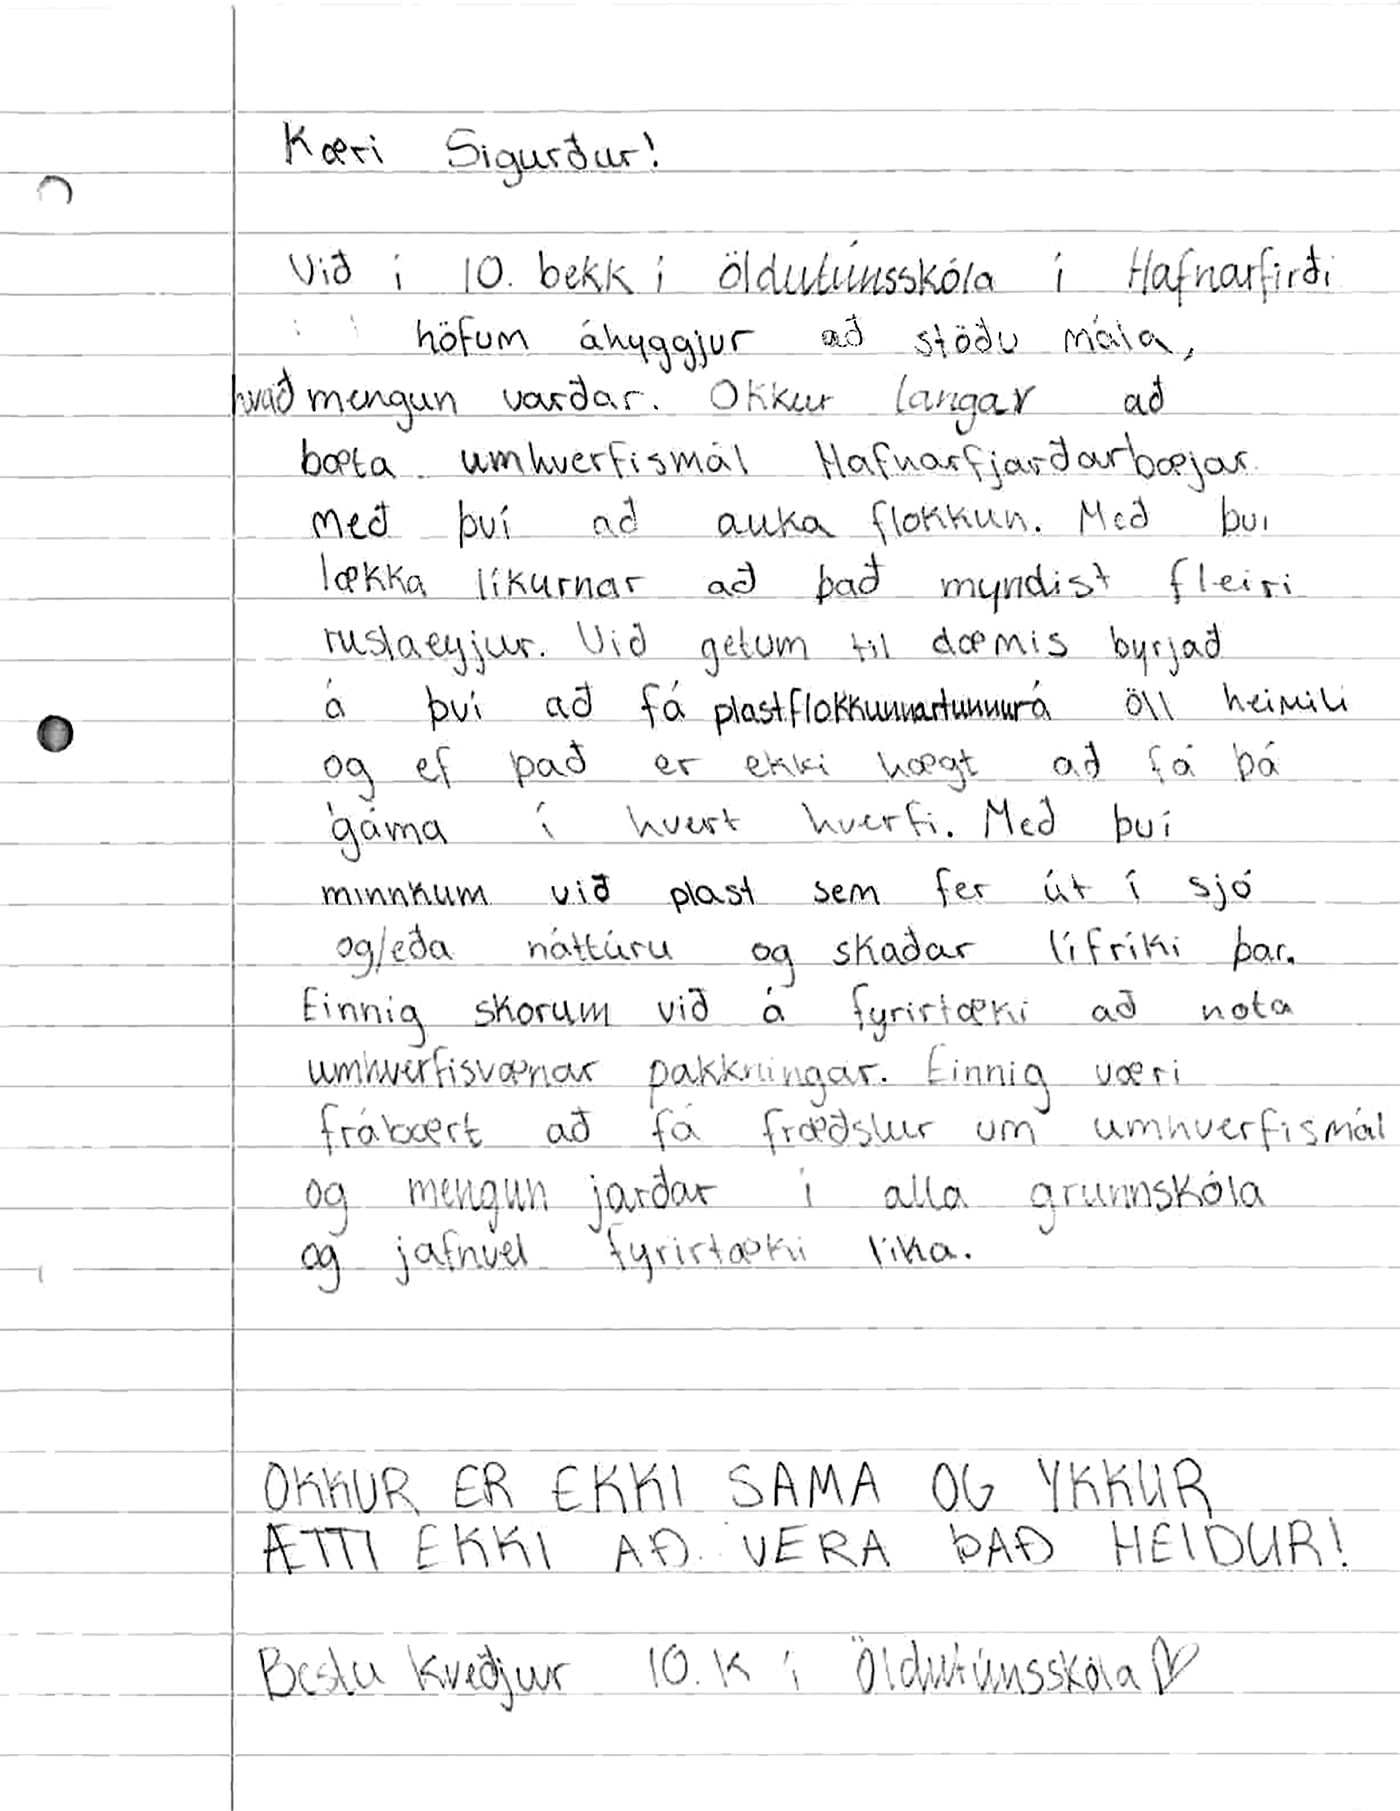 Kæri Sigurður!
Við í 10. bekk í Öldutúnsskóla í Hafnarfirði
höfum áhyggjur að stöðu mála,
hvað mengun varðar. Okkur langar að
bæta umhverfismál Hafnarfjarðarbæjar
með því að auka flokkun. Með því
lækka líkurnar að það myndist fleiri
ruslaeyjur. Við getum til dæmis byrjað
á því að fá plastflokkunnartunnur á öll heimili
og ef það er ekki hægt að fá þá
gáma í hvert hverfi. Með því
minnkum við plast sem fer út í sjó
og/eða náttúru og skaðar lífríki þar.
Einnig skorum við á fyrirtæki að nota
umhverfisvænar pakkningar. Einnig væri
frábært að fá fræðslur um umhverfismál
og mengun jarðar í alla grunnskóla
og jafnvel fyrirtæki líka.
OKKUR ER EKKI SAMA OG YKKUR
ÆTTI EKKI AÐ VERA ÞAÐ HEIDUR!
Bestu kveðjur 10. K í Öldutúnsskóla ♡